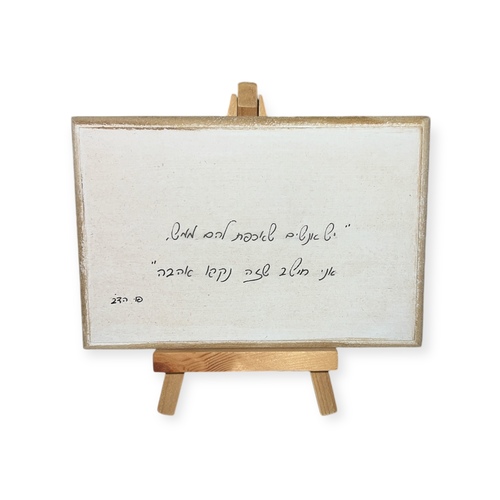 "יש אנשים שאכפת להם ממש,
אני חושב שזה נקרא אהבה"
פו הדב